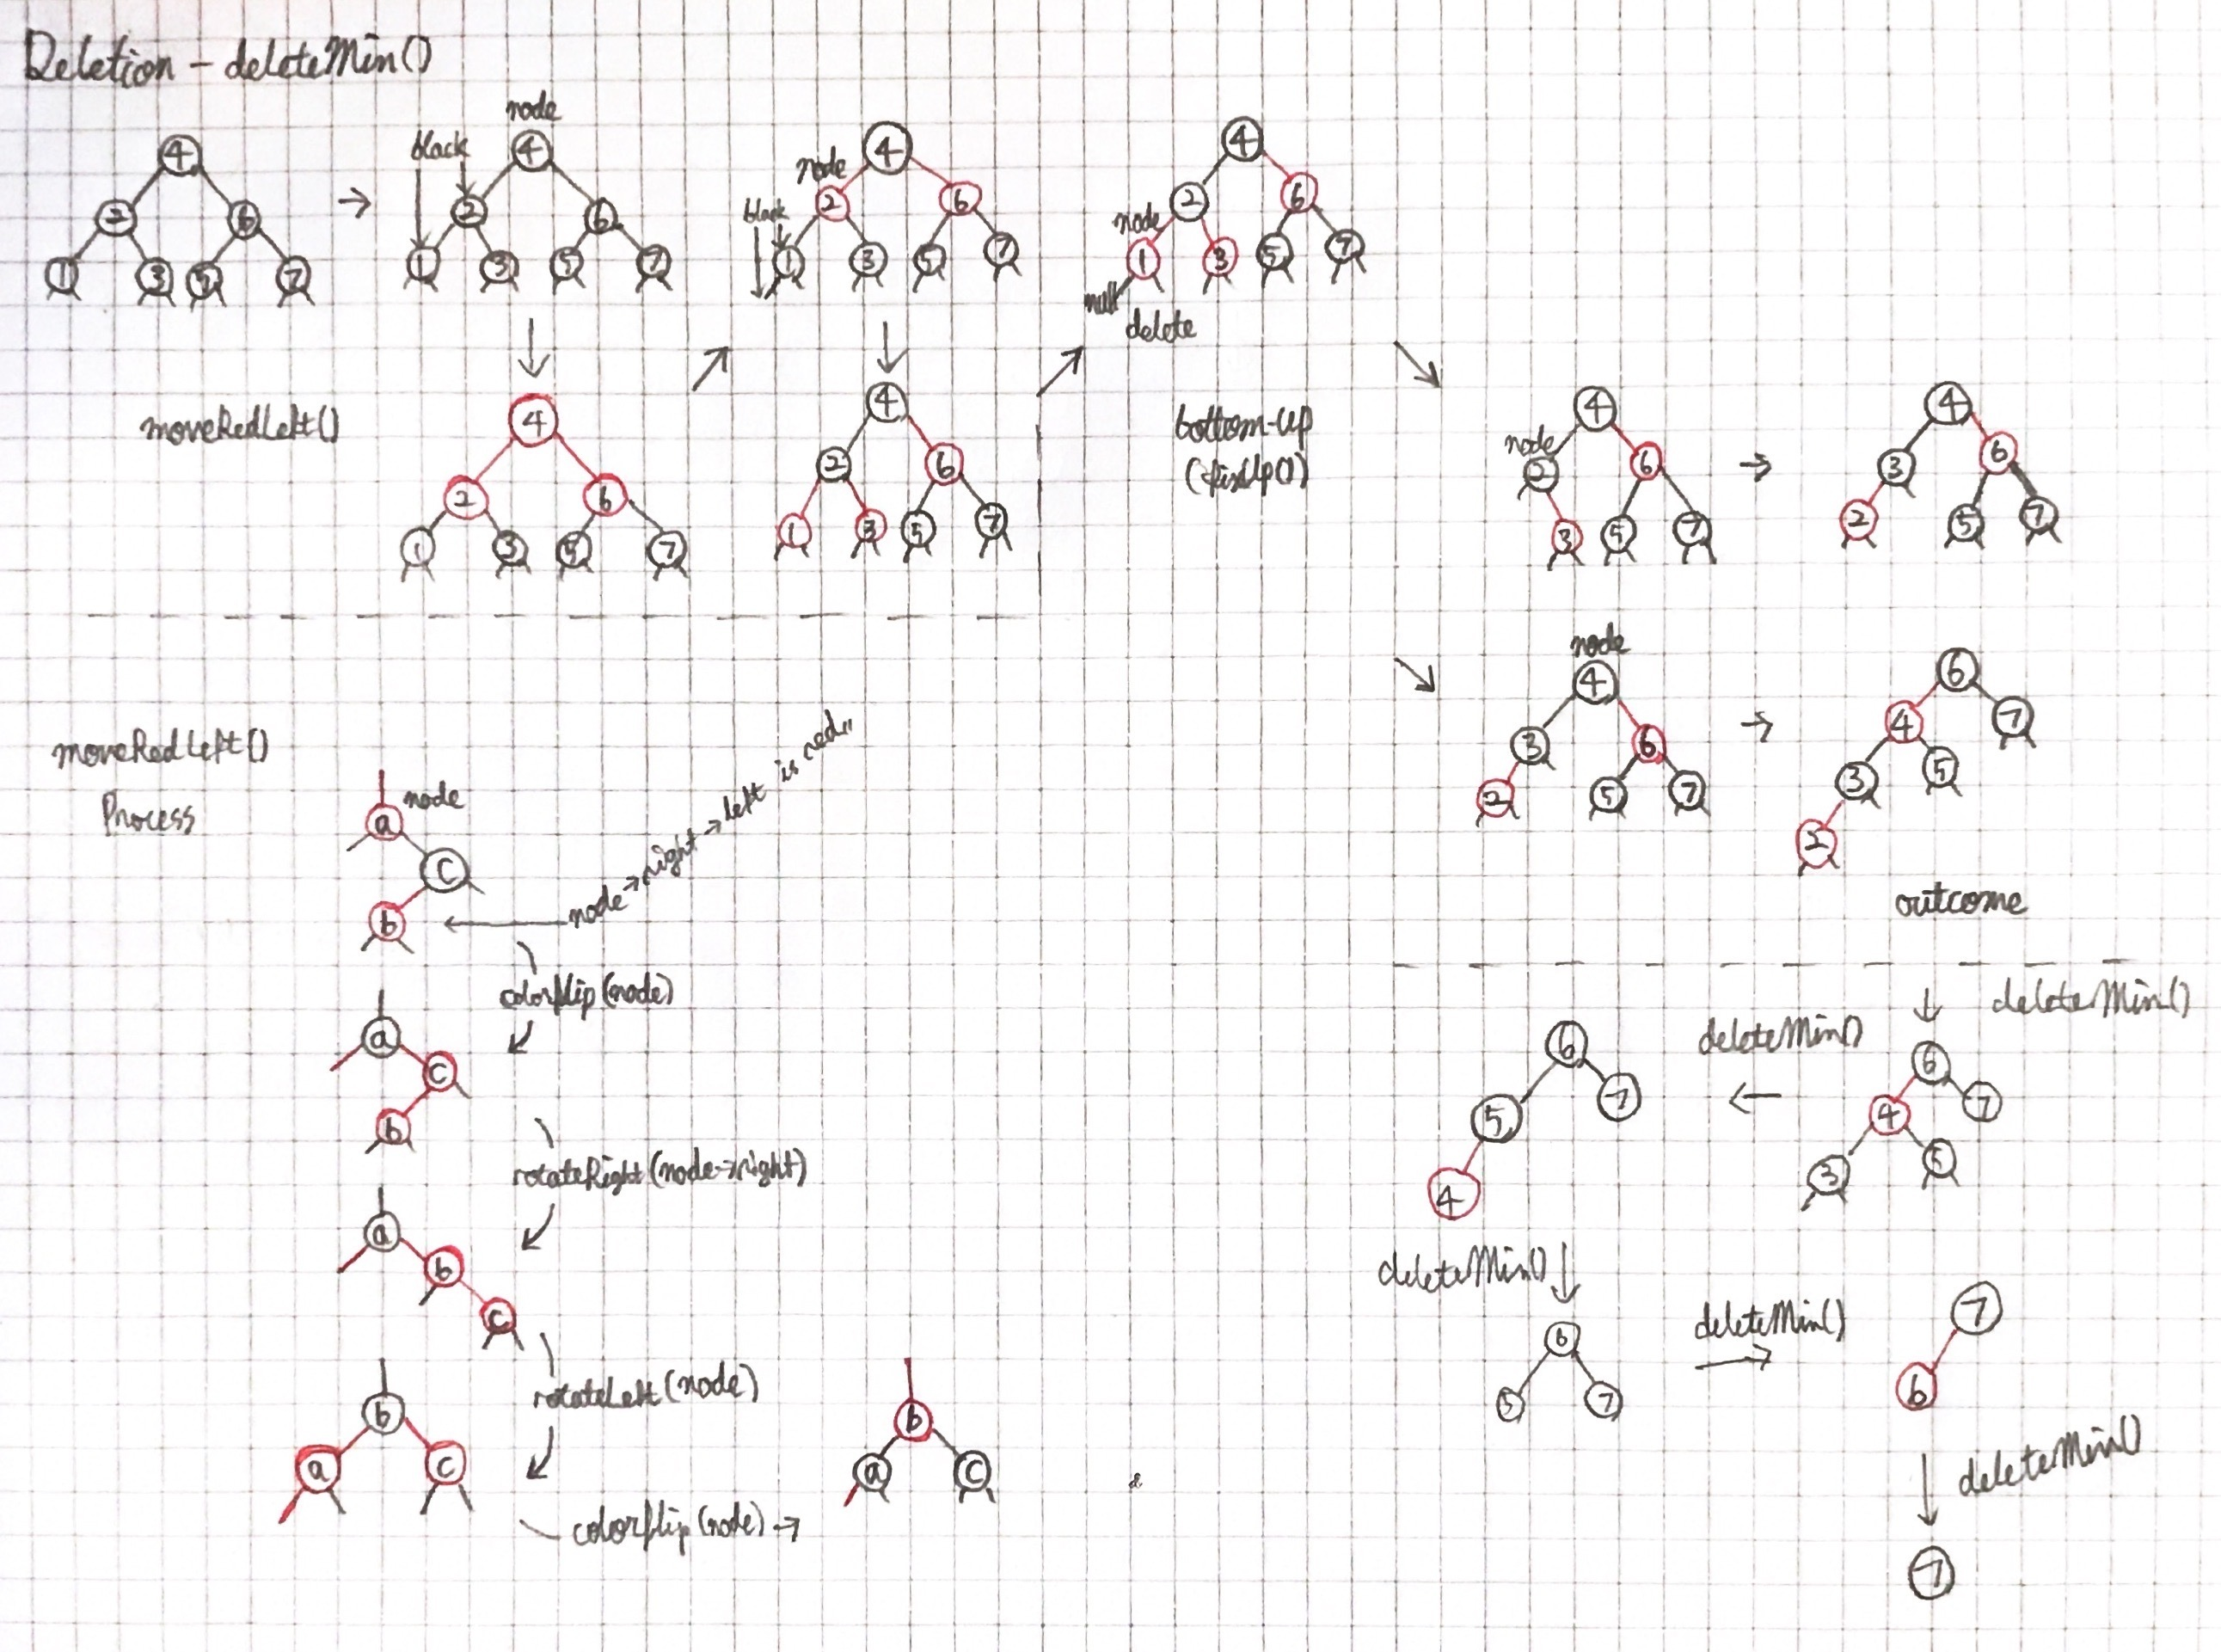 Deletion - deleteMin()
4
2 6
1 3 5 7
→
node
black
4
2 6
1 3 5 7
node
black
4
2 6
1 3 5 7
node
4
2 6
1 3 5 7
null
delete
moveRedLeft()
4
2 6
1 3 5 7
4
2 6
1 3 5 7
bottom-up
(fixUp())
node
4
2 6
3 5 7
→
4
3 6
2 5 7
node
4
3 6
2 5 7
→
6
4 7
3 5
2
outcome
moveRedLeft()
Process
node
a
c
b
node→right→left is red
colorflip(node)
a
c
b
rotateRight(node→right)
a
b
c
rotateLeft(node)
b
a c
colorflip(node) →
b
a c
deleteMin()
6
4 7
3 5
deleteMin()
6
5 7
4
deleteMin()
6
5 7
deleteMin()
7
6
deleteMin()
7